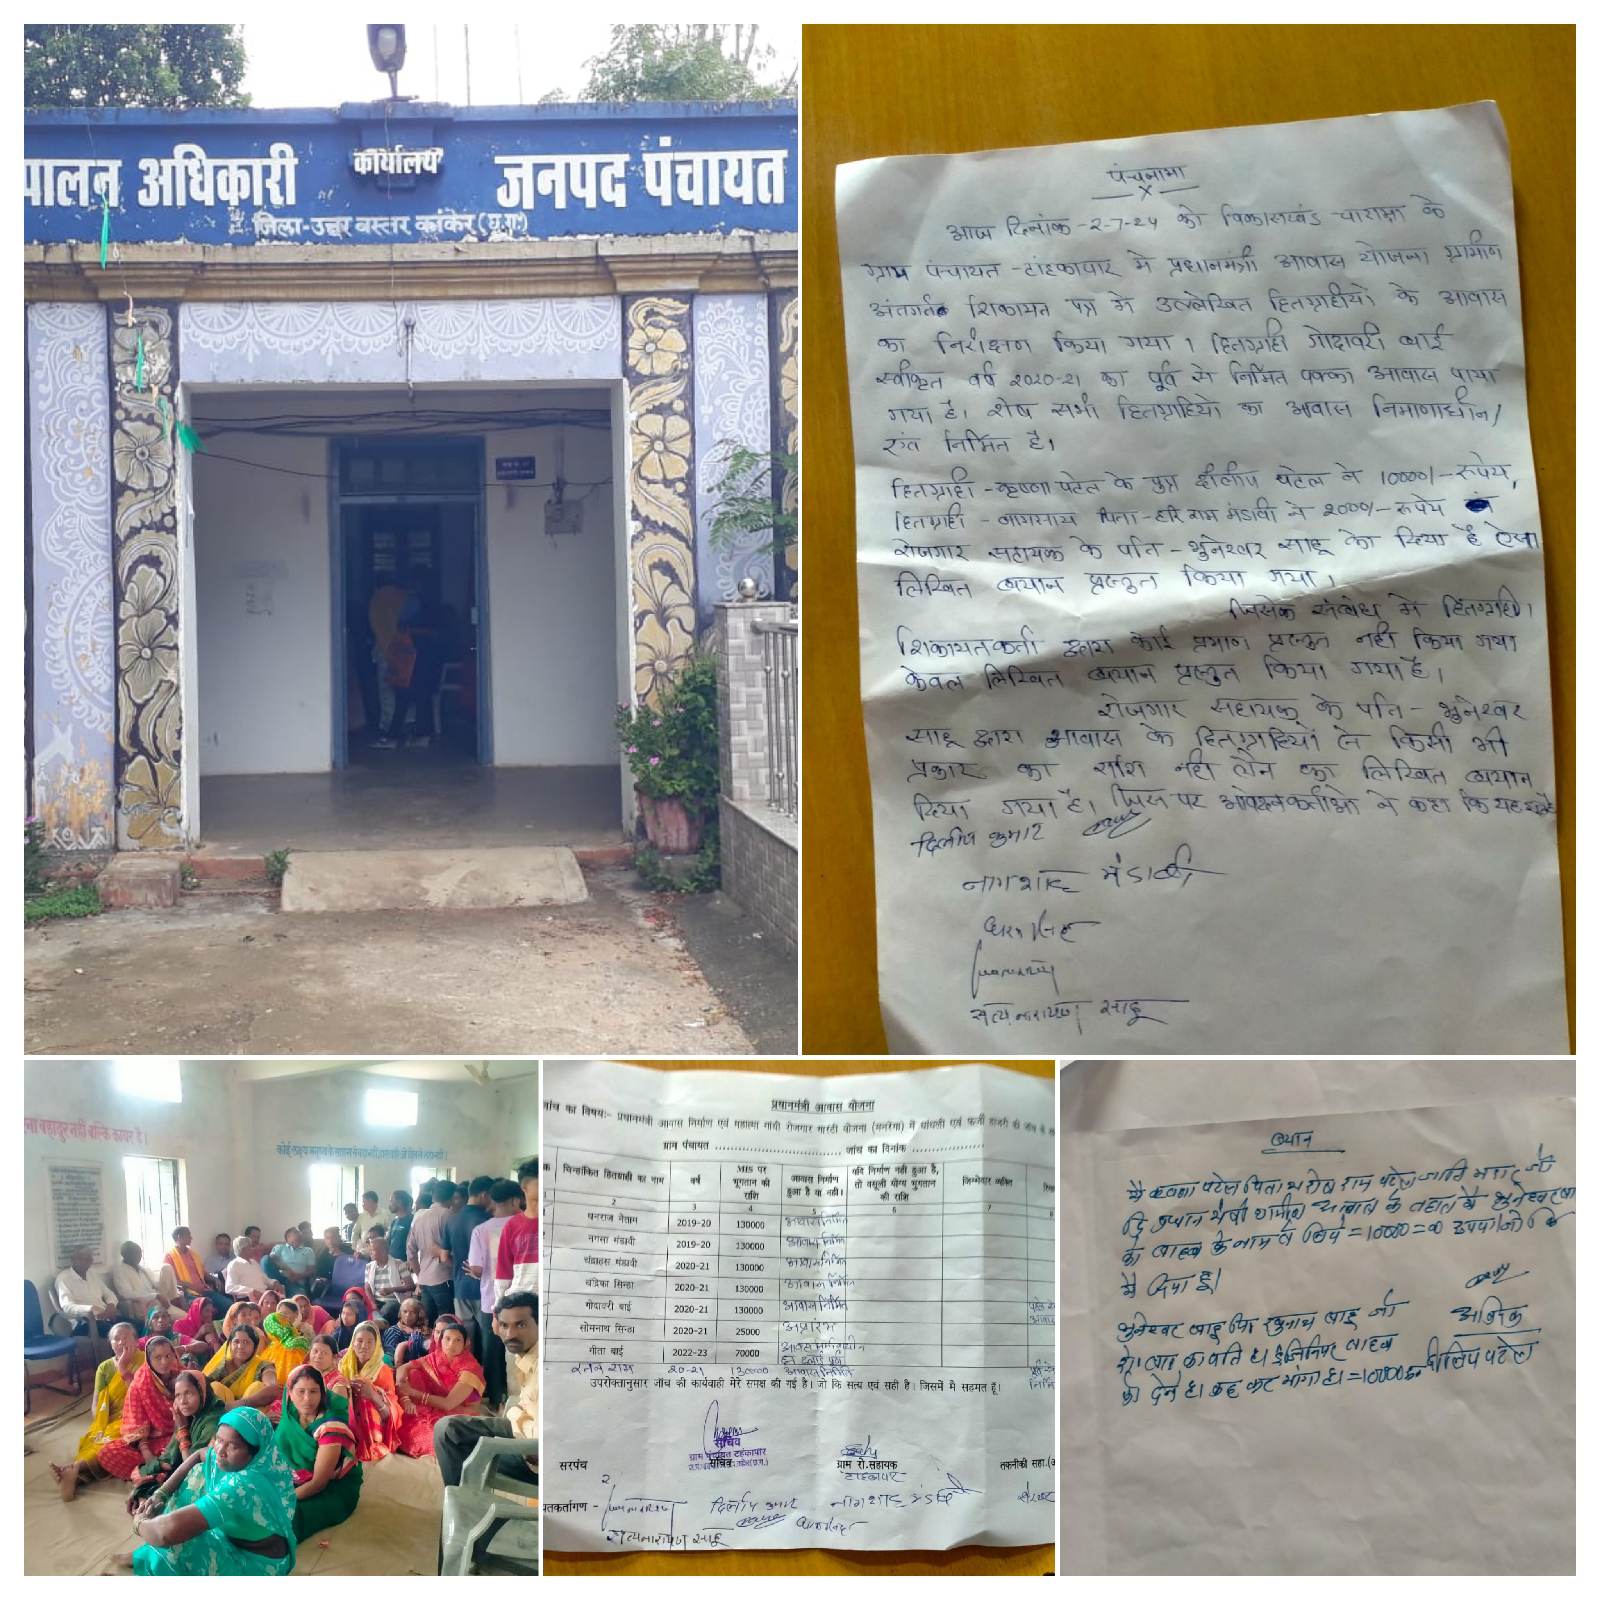 पालन अधिकारी कार्यालय जनपद पंचायत
जिला-उत्तर बस्तर कांकेर (छ.ग.)
पंचनामा
आज दिनांक-2-7-24 को विकासखंड चारामा के
ग्राम पंचायत - टांहकापार में प्रधानमंत्री आवास योजना ग्रामीण
अंतर्गत शिकायत पत्र में उल्लेखित हितग्राहीयों के आवास
का निरीक्षण किया गया। हितग्राही गोदावरी बाई
स्वीकृत वर्ष 2020-21 का पूर्व से निर्मित पक्का आवास पाया
गया है। शेष सभी हितग्राहियों का आवास निमाणाधीन/
एवं निर्मित है।
हितग्राही - कृष्णा पटेल के पुत्र दीलीप पटेल ने 10000/- रूपये,
हितग्राही - नागसाय पिता - हरि राम मंडावी ने 2000/- रूपये
रोजगार सहायक के पति - भुनेश्वर साहू को दिया है ऐसा
लिखित बयान प्रस्तुत किया गया।
जिसके संबंध में हितग्राही।
शिकायतकर्ता द्वारा कोई प्रमाण प्रस्तुत नहीं किया गया
केवल लिखित बयान प्रस्तुत किया गया है।
रोजगार सहायक के पति - भुनेश्वर
साहू द्वारा आवास के हितग्राहियों से किसी भी
प्रकार का राशि नहीं लेने का लिखित बयान
दिया गया है। जिस पर आवेदनकर्ताओ ने कहा कि यह
दिलीप कुमार
नागशाह मंडावी
सत्यनारायण साहू
ना बहादुर नहीं बल्कि कायर है।
प्रधानमंत्री आवास योजना
जांच का विषय:- प्रधानमंत्री आवास निर्माण एवं महात्मा गांधी रोजगार गारंटी योजना (मनरेगा) में धांधली एवं फर्जी हाजरी की जांच के
ग्राम पंचायत .................... जांच का दिनांक ....................
चिन्हांकित हितग्राही का नाम वर्ष MIS पर भुगतान की राशि आवास निर्माण हुआ है या नही। यदि निर्माण नही हुआ है, तो वसूली योग्य भुगतान की राशि जिम्मेदार व्यक्ति
2 3 4 5 6 7 8
धनराज नेताम 2019-20 130000 आवास निर्मित
नगसा मंडावी 2019-20 130000 आवास निर्मित
चंद्राहास मंडावी 2020-21 130000 आवास निर्मित
चंद्रिका सिन्हा 2020-21 130000 आवास निर्मित
गोदावरी बाई 2020-21 130000 आवास निर्मित
सोमनाथ सिन्हा 2020-21 25000 अप्रारंभ
गीता बाई 2022-23 70000
रतन राम 20-21 130000 आवास निर्मित
उपरोक्तानुसार जाँच की कार्यवाही मेरे समक्ष की गई है। जो कि सत्य एवं सही है। जिसमें मै सहमत हूँ।
सचिव
ग्राम पंचायत टाहकापार
सरपंच सचिव ग्राम रो.सहायक तकनीकी सहा.
टाहकापार
यतकर्तागण - दिलीप कुमार नागशाह मंडावी
सत्यनारायण साहू
बयान
मै कृष्णा पटेल पिता राम पटेल जाति
के नाम से लिये = 10000=00 रुपया
मै दिया हूं।
भुनेश्वर साहू पिता साहू
का पति है इंजिनियर साहब
को देने है कह कर मांगा है। = 10000 दीलिप पटेल